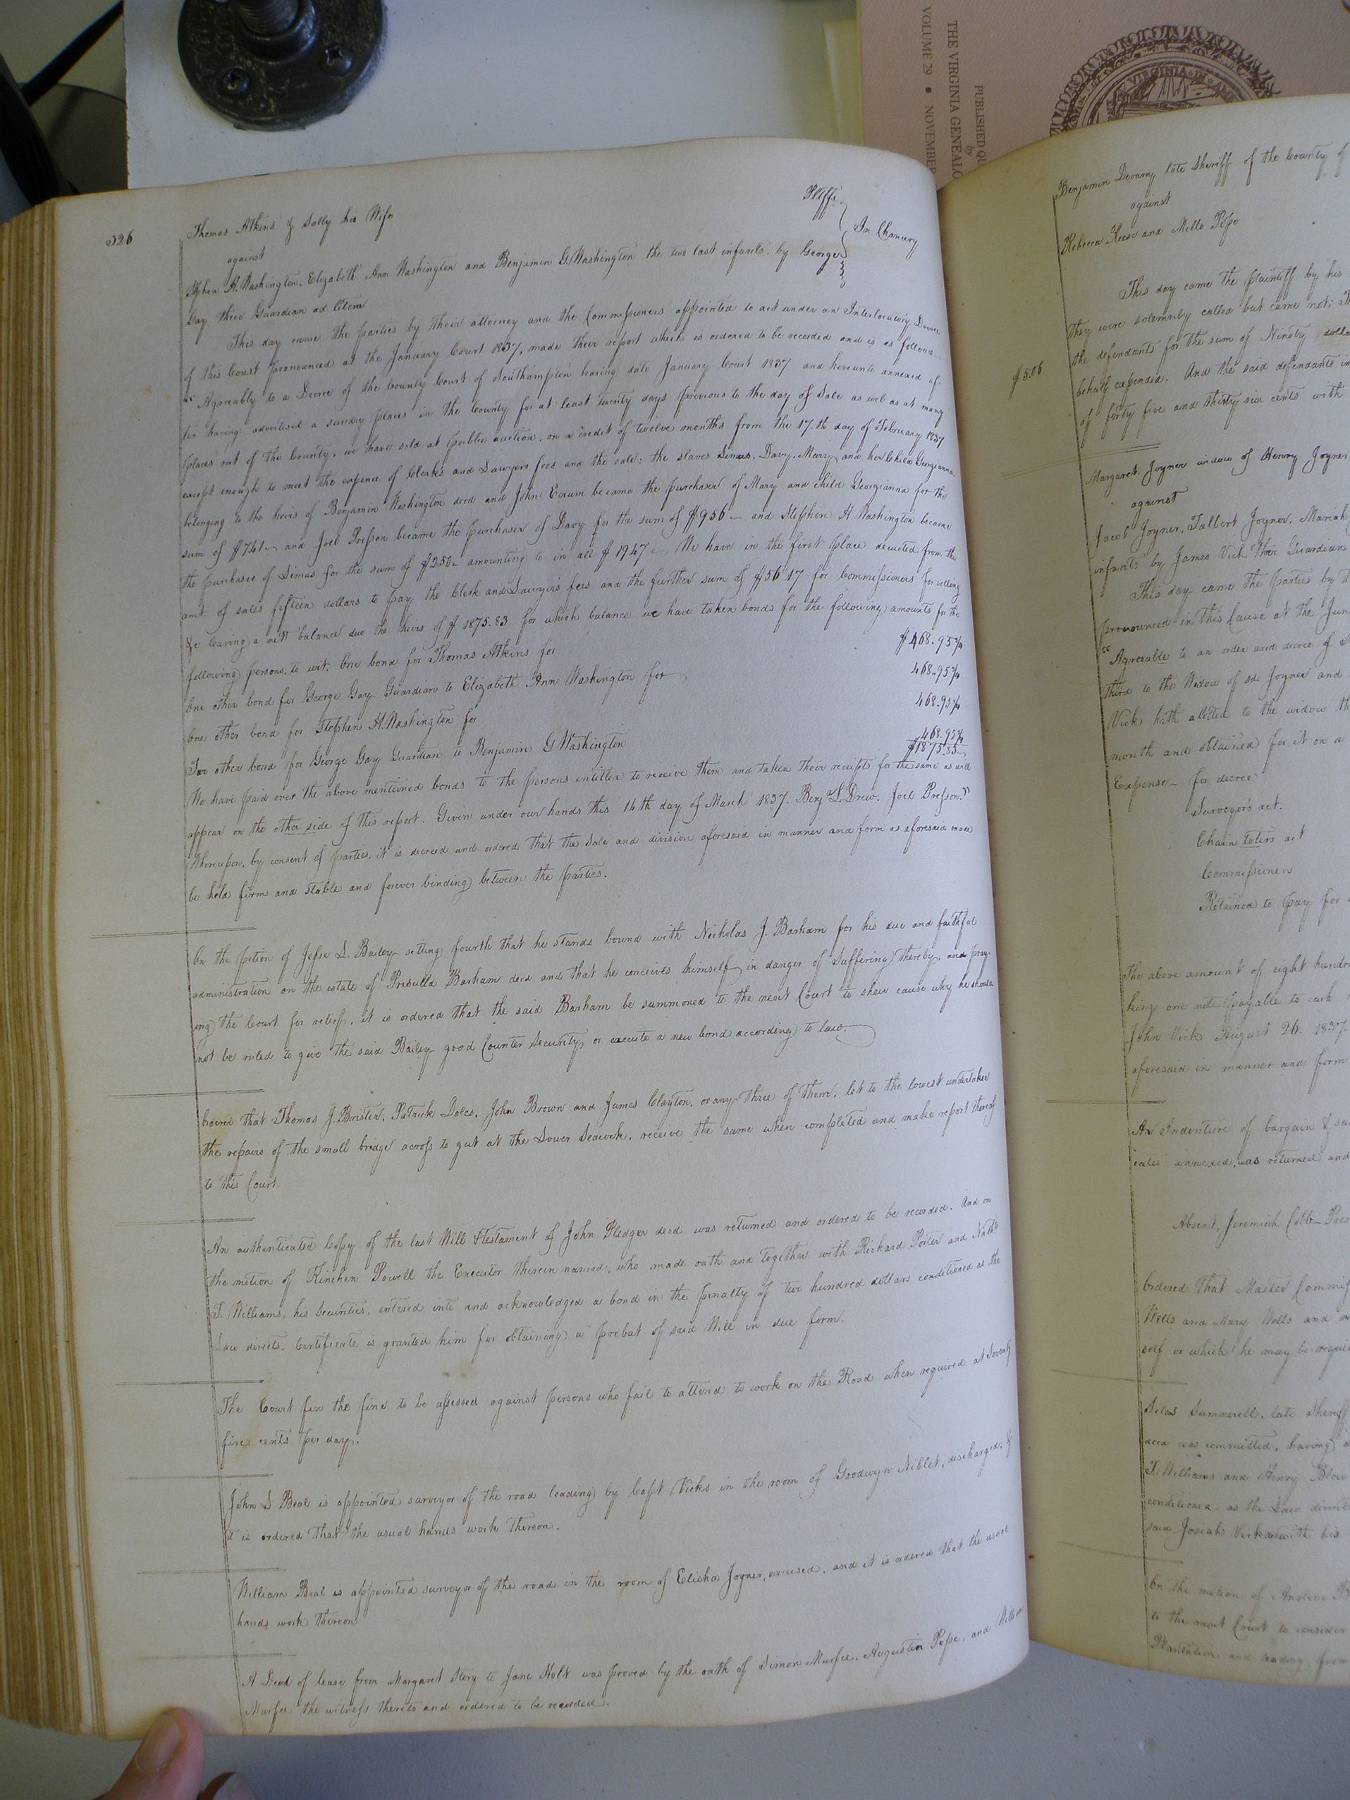 PUBLISHED QU
by
THE VIRGINIA GENEALO
VOLUME 29 ■ NOVEMBER
VIRGINIA
326
Thomas Atkins & Sally his Wife Pltffs
against In Chancery
Stephen H. Washington, Elizabeth Ann Washington and Benjamin G Washington the two last infants by George
Gay their Guardian ad litem
This day came the parties by their attorney and the Commissioners appointed to act under an Interlocutory Decree
of this Court pronounced at the January Court 1837, made their report which is ordered to be recorded and is as follows.
"Agreeably to a Decree of the County Court of Southampton bearing date January Court 1837 and hereunto annexed af-
ter having advertised a sundry places in the County for at least twenty days previous to the day of Sale as well as at many
places out of the County, we have sold at public auction, on a credit of twelve months from the 17th day of February 1837
except enough to meet the expence of Clerks and Lawyers fees and the sale; the slaves Dimas, Davy, Mary and her Child Georgianna
belonging to the heirs of Benjamin Washington decd and John Crum became the purchaser of Mary and child Georgianna for the
sum of $741 and Joel Presson became the purchaser of Davy for the sum of $956 and Stephen H Washington became
the purchaser of Dimas for the sum of $250 amounting to in all $1947 We have in the first place deducted from the
amt. of sales fifteen dollars to pay the Clerk and Lawyers fees and the further sum of $56.17 for Commissioners for selling
&c leaving a nett balance due the heirs of $1875.83 for which balance we have taken bonds for the following amounts for the
following persons, to wit, One bond for Thomas Atkins for $468.95¾
One other bond for George Gay Guardian to Elizabeth Ann Washington for 468.95¾
One other bond for Stephen H. Washington for 468.95¾
One other bond for George Gay Guardian to Benjamin G Washington 468.95¾
$1875.83
We have paid over the above mentioned bonds to the persons intitled to receive them and taken their receipts for the same as will
appear on the other side of this report. Given under our hands this 14th day of March 1837. Benj L. Drew. Joel Presson."
Whereupon, by consent of parties, it is decreed and ordered that the Sale and division aforesaid in manner and form as aforesaid made
be held firm and stable and forever binding between the parties.
On the petition of Jesse L. Bailey setting fourth that he stands bound with Nicholas J. Barham for his due and faithful
administration on the estate of Barham decd and that he conceives himself in danger of suffering thereby and pray-
ing the Court for relief, it is ordered that the said Barham be summoned to the next Court to shew cause why he should
not be ruled to give the said Bailey good Counter Security or execute a new bond according to law.
Ordered that Thomas J. Brister, Patrick Doles, John Brown and James Clayton, or any three of them, let to the lowest undertaker
the repairs of the small bridge across to gut at the Lower Seacock, receive the same when completed and make report thereof
to this Court.
An authenticated Copy of the last Will & testament of John Pledger decd was returned and ordered to be recorded. And on
the motion of Kinchen Powell the Executor therein named, who made oath and together with Richard Porter and Nathl
T. Williams, his Securities, entered into and acknowledged a bond in the penalty of two hundred dollars conditioned as the
Law directs. Certificate is granted him for obtaining a probat of said Will in due form.
The Court fix the fine to be assessed against persons who fail to attend to work on the Road when required at Seventy
five cents per day.
John S Beal is appointed surveyor of the road leading by Capt Vicks in the room of Goodwyn Niblet, discharged, &
it is ordered that the usual hands work thereon.
William Beal is appointed surveyor of the road in the room of Elisha Joyner, excused, and it is ordered that the usual
hands work thereon
A Deed of lease from Margaret Story to Jane Holt was proved by the oath of Simon Murfee, Augustin Pope, and
Murfee the witness thereto and ordered to be recorded.
Benjamin Devany late Sheriff of the County of
against
Rebecca Reese and Mills Pope
This day came the plaintiff by his
they were solemnly called but came not: Th
the defendants for the sum of Ninety dolla
behalf expended. And the said defendants in
of forty five and thirty six cents with
Margaret Joyner widow of Henry Joyner
against
Jacob Joyner, Talbert Joyner, Mariah
infants by James Vick their Guardian
This day came the parties by th
pronounced in this Cause at the Jun
"Agreeable to an order and decree of S
third to the Widow of sd Joyner and
Vick hath alloted to the widow th
month and obtained for it on a
Expense for decree
Surveyors act.
Chain toters act
Commissioners
Retained to pay for
The above amount of eight hundr
king one note payable to each
John Vick August 26. 1837.
aforesaid in manner and form
An Indenture of bargain & sa
cates annexed, was returned and
Absent, Jeremiah Cobb Pres
Ordered that Master Commis
Wells and Mary Wells and
self or which he may be requi
Silas Summerell, late Sheriff
decd was committed, having
T. Williams and Henry Blow
conditioned as the Law direct
said Josiah Vick with his
On the motion of
to the next Court to consider
Plantation and